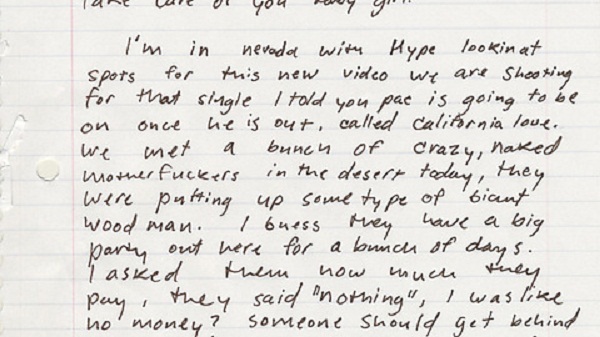 Take care of you baby girl.
I'm in nevada with Hype lookin at
spots for this new video we are shooting
for that single I told you pac is going to be
on once he is out, called California love.
We met a bunch of crazy, naked
motherfuckers in the desert today, they
were putting up some type of biant
wood man. I buess they have a big
party out here for a bunch of days.
I asked them how much they
pay, they said "nothing", I was like
no money? someone should get behind